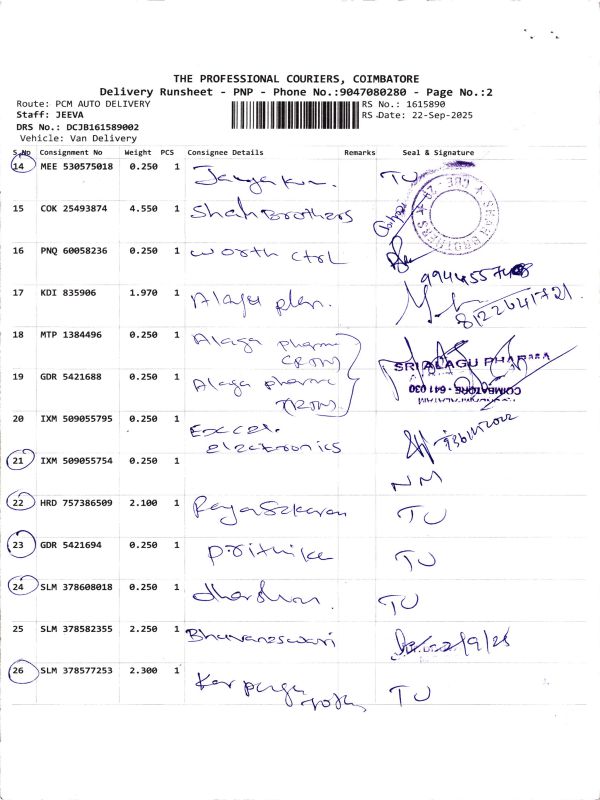 THE PROFESSIONAL COURIERS, COIMBATORE
Delivery Runsheet - PNP - Phone No.:9047080280 - Page No.:2
Route: PCM AUTO DELIVERY
RS No.: 1615890
Staff: JEEVA
RS Date: 22-Sep-2025
DRS No.: DCJB161589002
Vehicle: Van Delivery
S.No Consignment No Weight PCS Consignee Details Remarks Seal & Signature
14 MEE 530575018 0.250 1 TU
15 COK 25493874 4.550 1 Shah Brothers
SHAH BROTHERS
16 PNQ 60058236 0.250 1 worth ctrl
17 KDI 835906 1.970 1
18 MTP 1384496 0.250 1 Alaga pharma
SRI ALAGU PHARMA
19 GDR 5421688 0.250 1 Alaga pharma
COIMBATORE - 641 030
20 IXM 509055795 0.250 1 Excel
electronics
21 IXM 509055754 0.250 1 NM
22 HRD 757386509 2.100 1 TU
23 GDR 5421694 0.250 1 Prithika TU
24 SLM 378608018 0.250 1 TU
25 SLM 378582355 2.250 1 Bhuvaneswari
26 SLM 378577253 2.300 1 TU